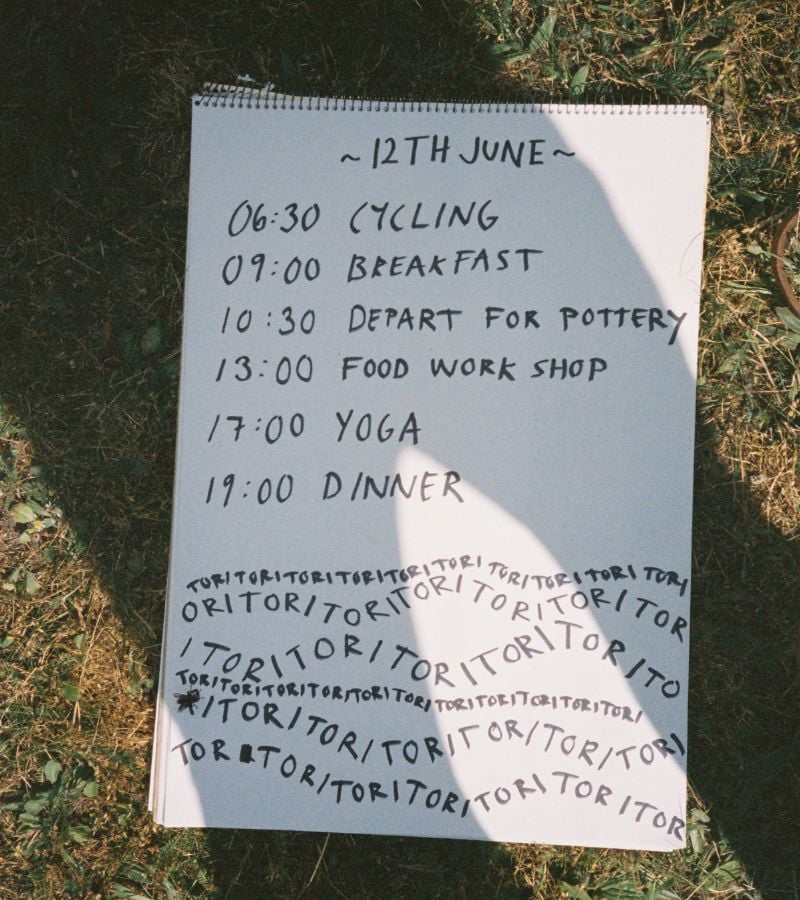 ~ 12TH JUNE ~
06:30 CYCLING
09:00 BREAKFAST
10:30 DEPART FOR POTTERY
13:00 FOOD WORK SHOP
17:00 YOGA
19:00 DINNER
TORITORITORITORITORITORITORITORITORITORI
ORITORITORITORITORITORITOR
ITORITORITORITORITORITO
TORITORITORITORITORITORITORITORITORITORITORI
ITORITORITORITORITORITORI
TOR TORITORITORITORITORITOR